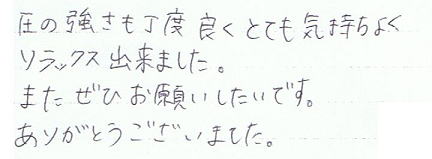 圧の強さも丁度良くとても気持ちよく
リラックス出来ました。
またぜひお願いしたいです。
ありがとうございました。